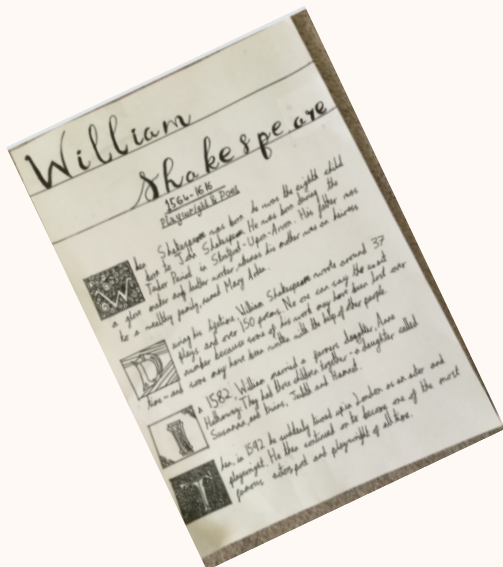 William
Shakespeare
1564-1616
Playwright & Poet
When Shakespeare was born, he was the eighth child
born to John Shakespeare. He was born during the
Tudor Period in Stratford-Upon-Avon. His father was
a glove maker and his mother was an heiress
to a wealthy family, named Mary Arden.
During his lifetime, William Shakespeare wrote around 37
plays and over 150 poems. No one can say the exact
number because some of his work may have been lost over
time - and some may have been written with the help of other people.
In 1582, William married a farmers daughter, Anne
Hathaway. They had three children together - a daughter called
Susanna, and twins, Judith and Hamnet.
Then, in 1592 he suddenly turned up in London as an actor and
playwright. He then continued on to become one of the most
famous actors, poet and playwright of all time.